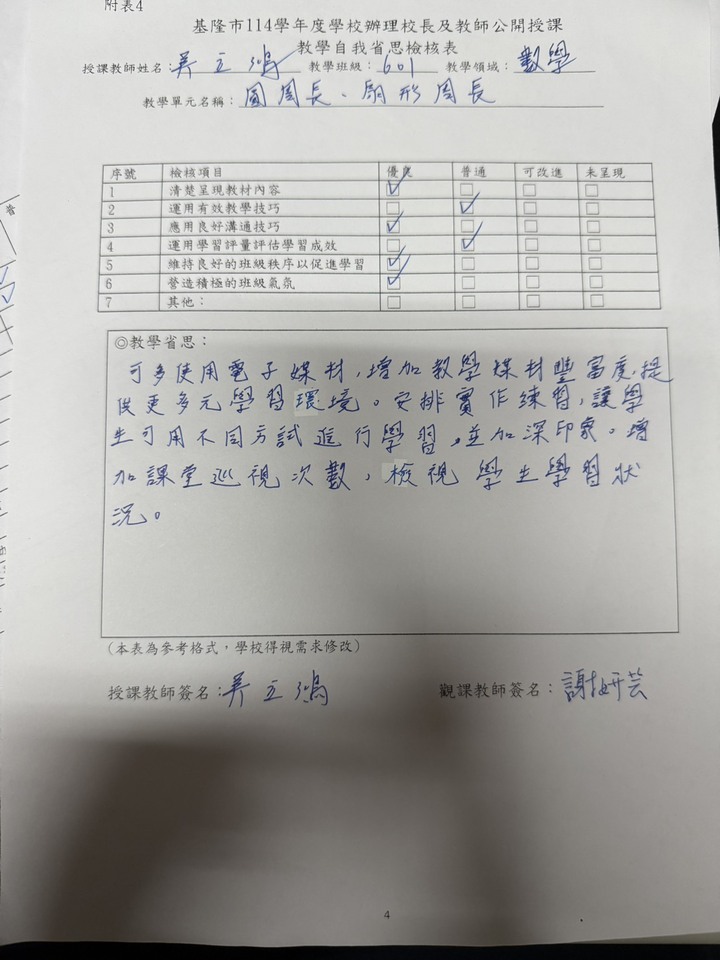 附表4
基隆市114學年度學校辦理校長及教師公開授課
教學自我省思檢核表
授課教師姓名：吳立鴻 教學班級：601 教學領域：數學
教學單元名稱：圓周長、扇形周長
序號 檢核項目 優良 普通 可改進 未呈現
1 清楚呈現教材內容 ☑ □ □ □
2 運用有效教學技巧 □ ☑ □ □
3 應用良好溝通技巧 ☑ □ □ □
4 運用學習評量評估學習成效 □ ☑ □ □
5 維持良好的班級秩序以促進學習 ☑ □ □ □
6 營造積極的班級氣氛 ☑ □ □ □
7 其他： □ □ □ □
◎教學省思：
可多使用電子媒材，增加教學媒材豐富度，提
供更多元學習環境。安排實作練習，讓學
生可用不同方試進行學習，並加深印象。增
加課堂巡視次數，檢視學生學習狀
況。
(本表為參考格式，學校得視需求修改)
授課教師簽名：吳立鴻 觀課教師簽名：謝妍芸
4